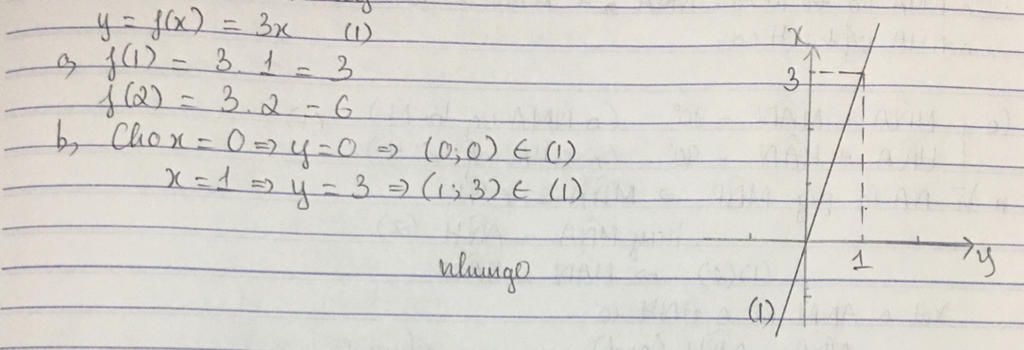 y = f(x) = 3x (1)
a, f(1) = 3.1 = 3
f(2) = 3.2 = 6
b, Cho x = 0 ⇒ y = 0 ⇒ (0;0) ∈ (1)
x = 1 ⇒ y = 3 ⇒ (1;3) ∈ (1)
nhung0
x
3
1
y
(1)